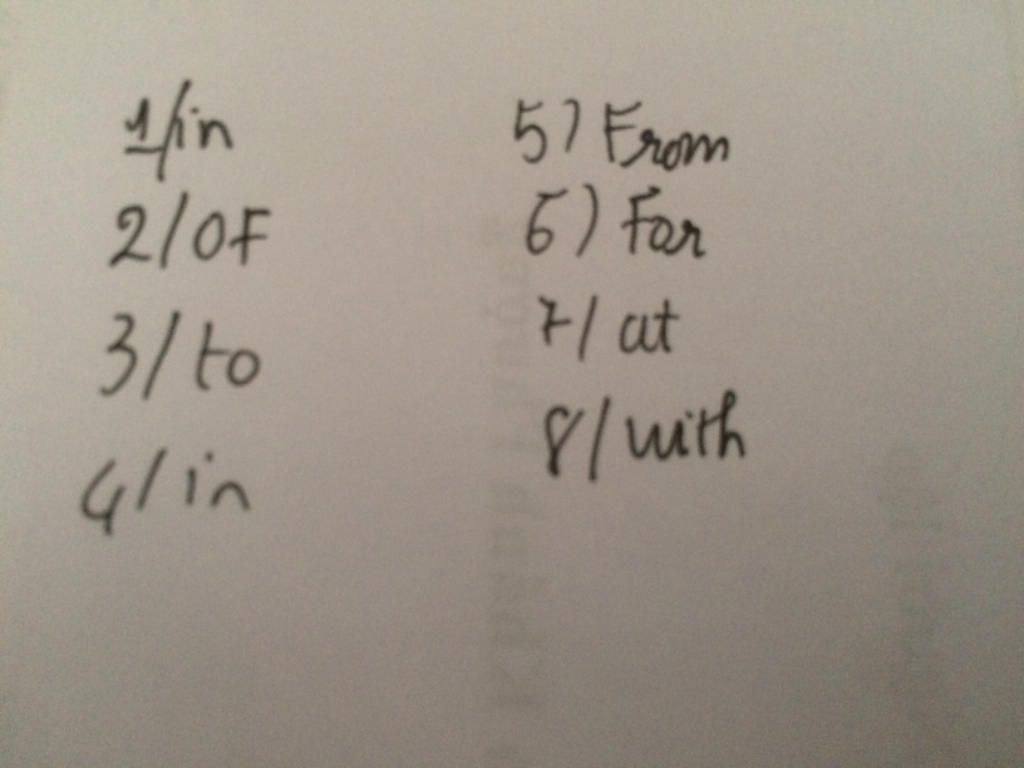 1/in
2/OF
3/to
4/in
5) From
6) For
7/at
8/with